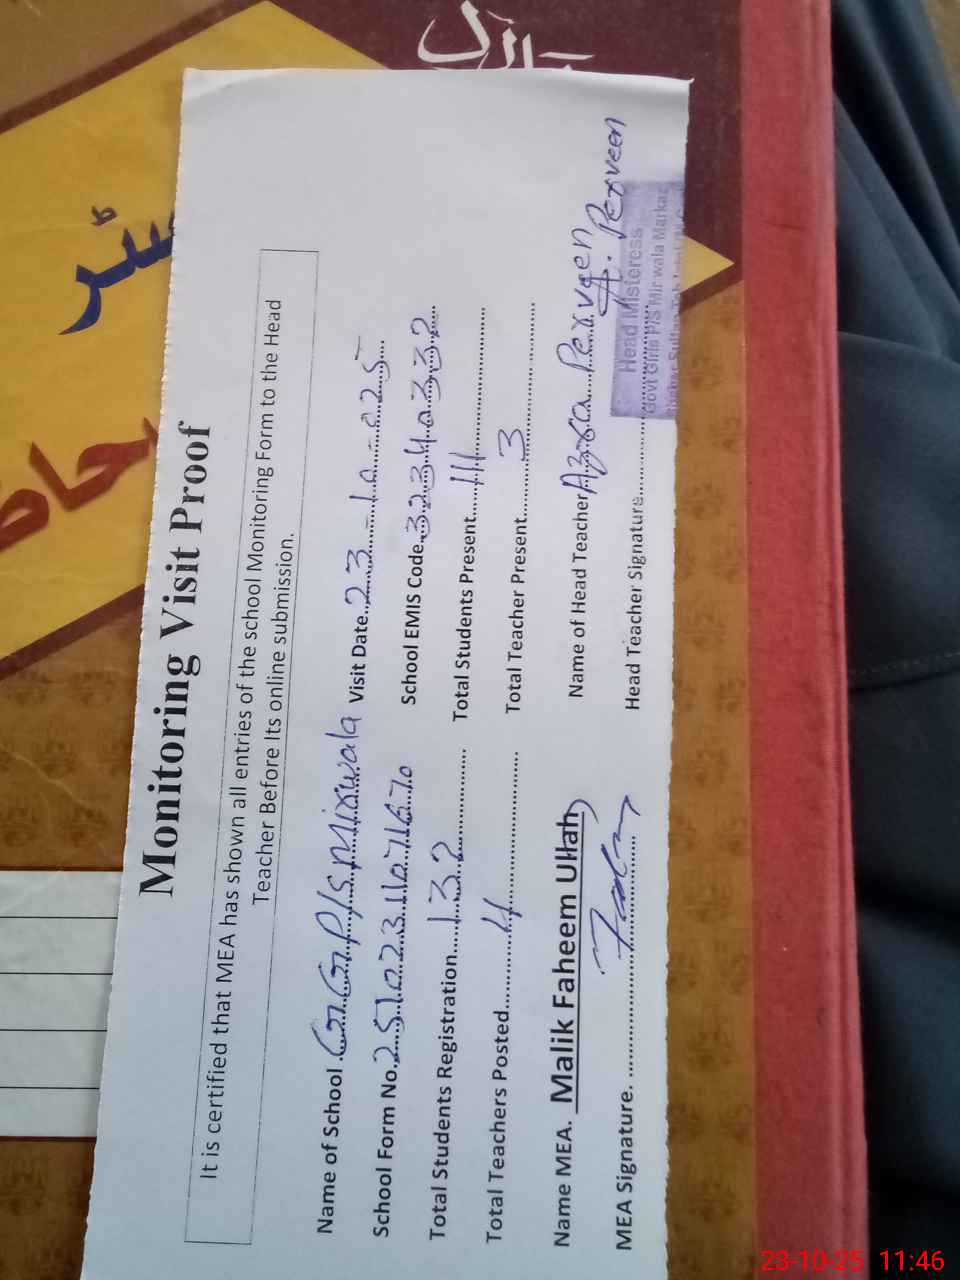 Monitoring Visit Proof
It is certified that MEA has shown all entries of the school Monitoring Form to the Head
Teacher Before Its online submission.
Name of School. GGP/S Mirwala Visit Date. 23-10-025
School Form No. 2510231107167 School EMIS Code. 32340332
Total Students Registration. 132 Total Students Present. 111
Total Teachers Posted. 4 Total Teacher Present. 3
Name MEA. Malik Faheem Ullah Name of Head Teacher Azra Perveen
MEA Signature. Head Teacher Signature. A. Perveen
Head Misteress
Govt Girls P/S Mir wala Markaz
23-10-25 11:46